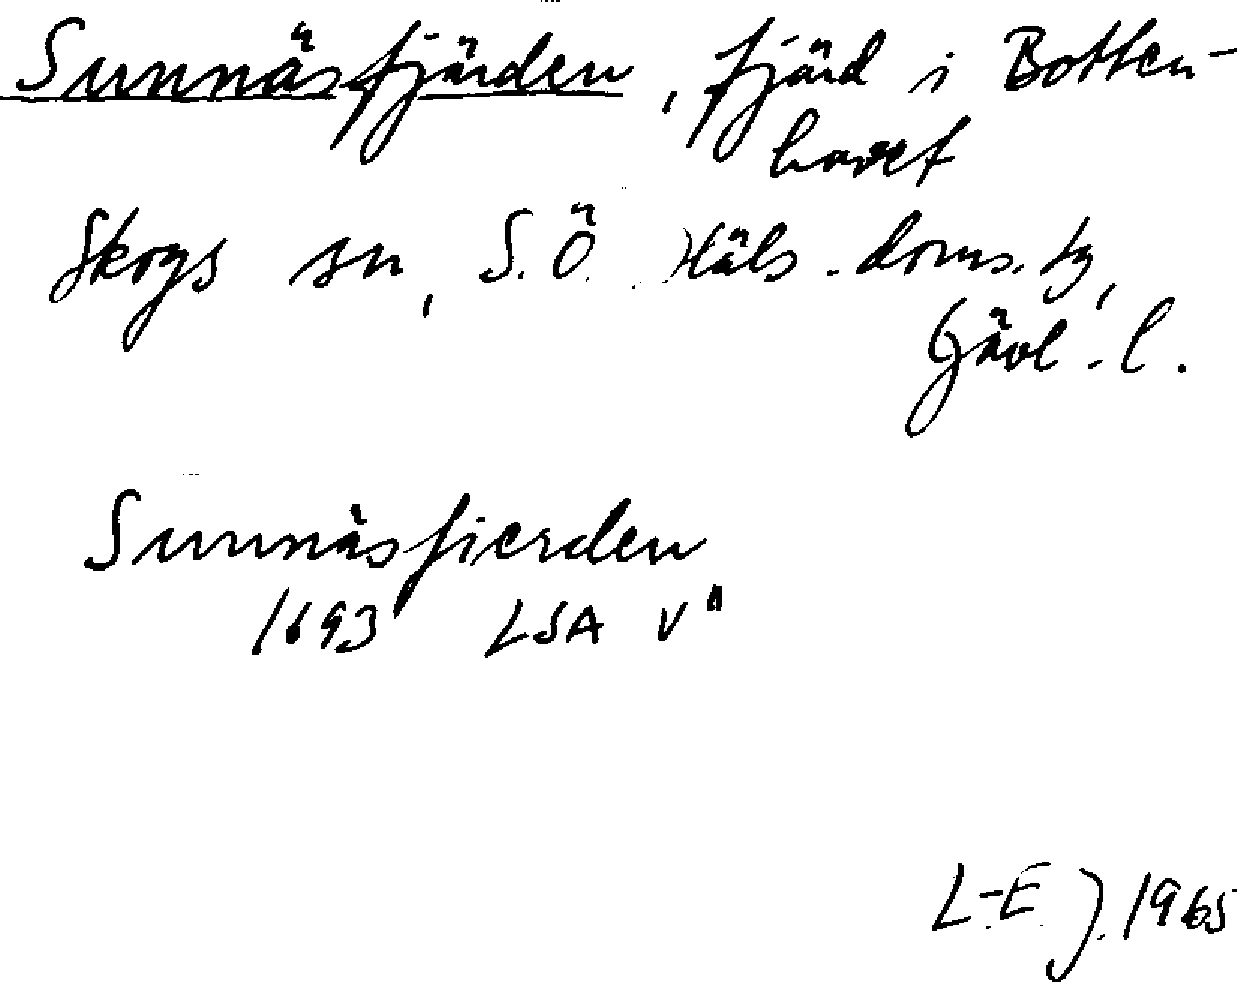 Sunnäsfjärden, fjärd i Botten-
havet
Skogs sn, S.Ö. Häls. doms. tg,
Gävl. l.
Sunnäsfierden
1693 LSA V"
L-E J. 1965